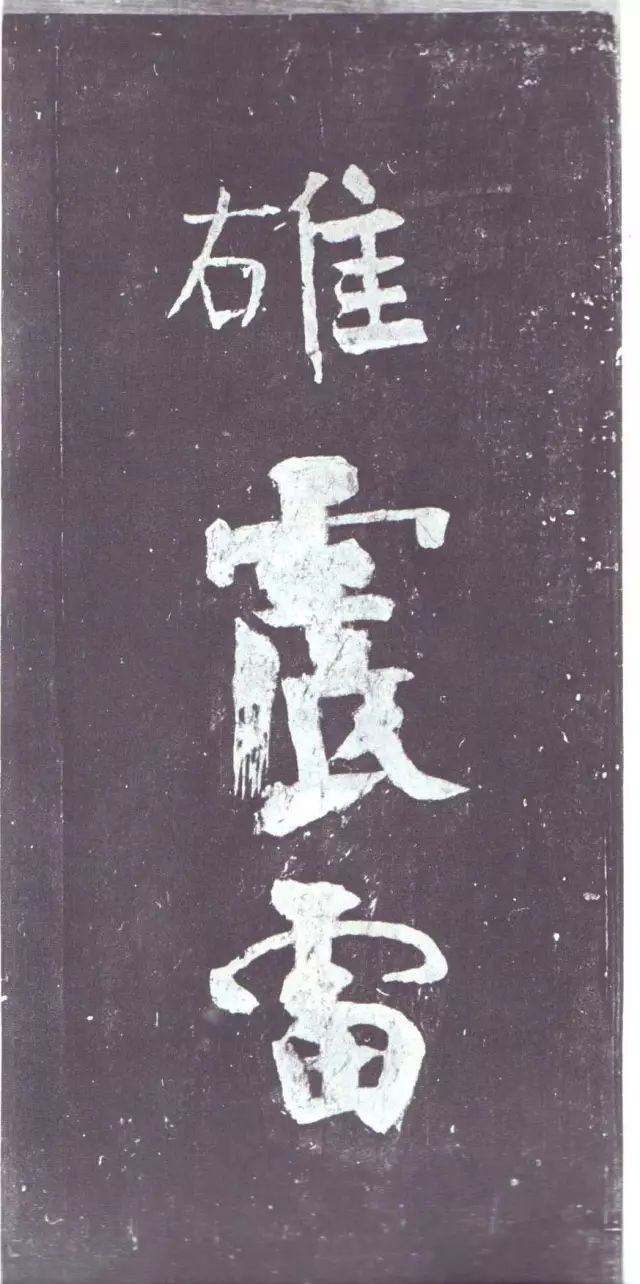 雄震雷